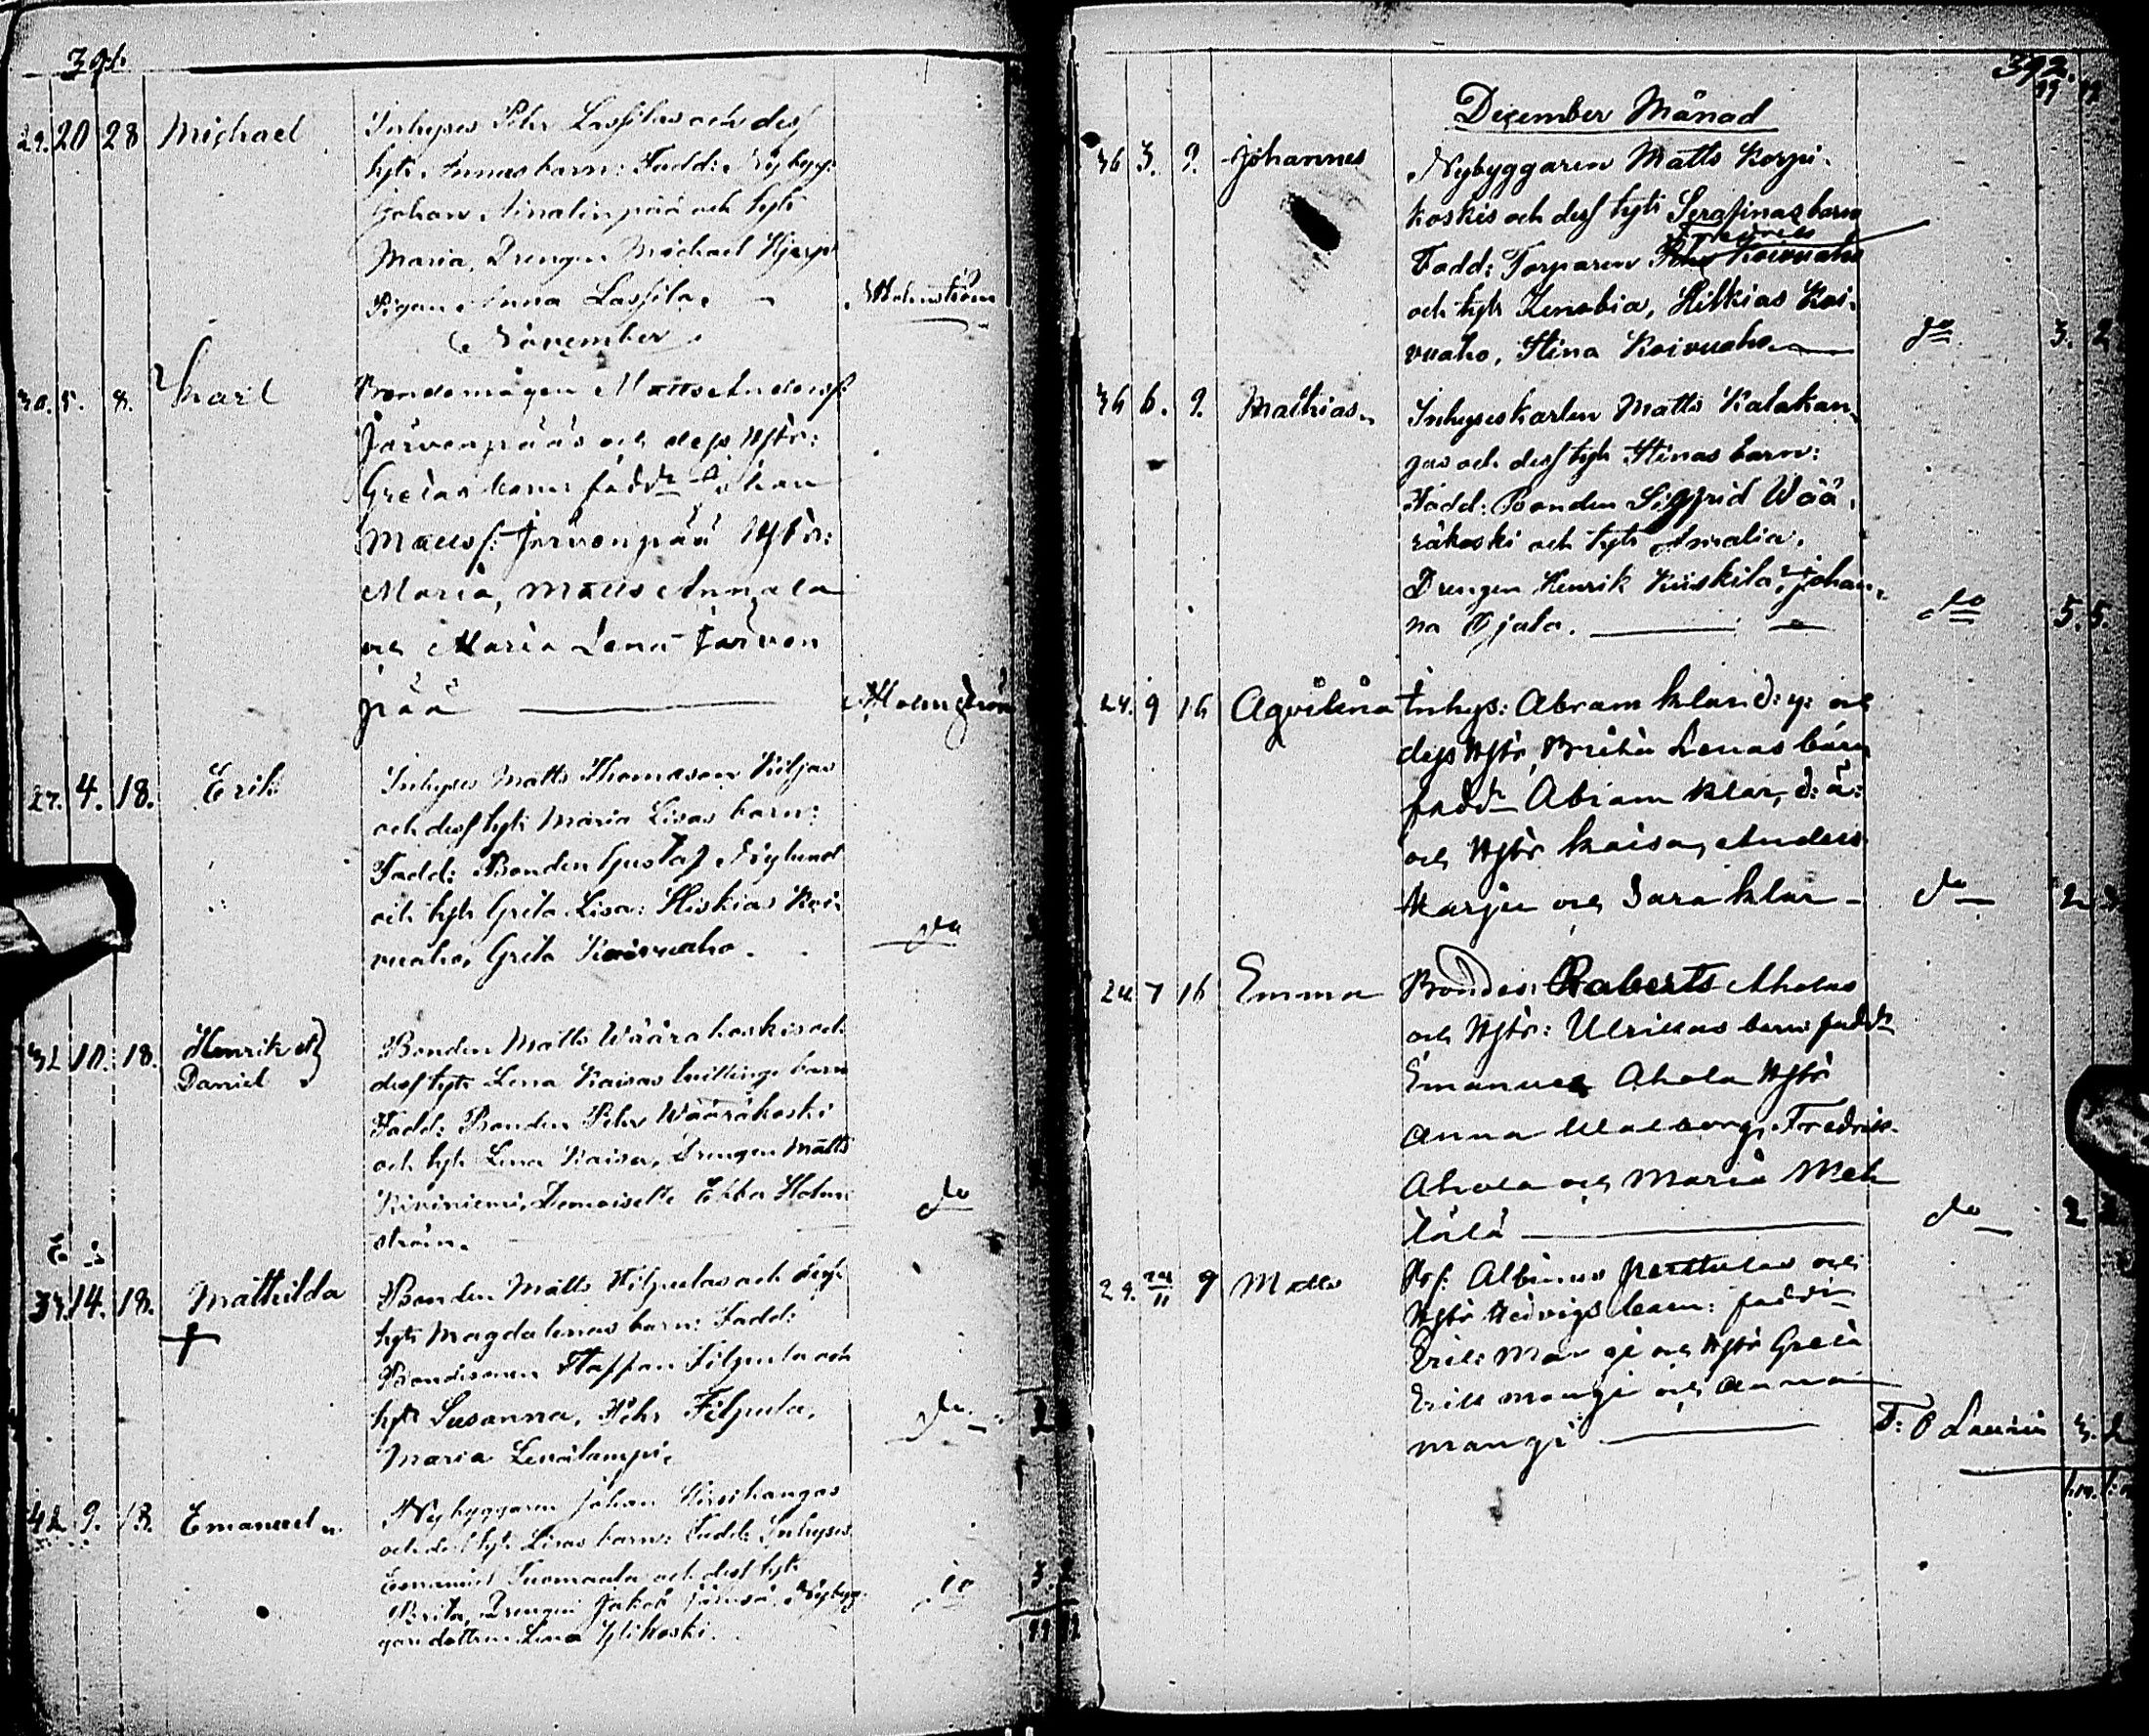 391.
29. 20 28 Michael Inhyses Pehr Lassilas och dess
hust: Annas barn: Fadd: Nybygg:
Johan Ainalinpää och hust:
Maria, Drengen Michael Hjerp
Pigan Anna Lassila. Holmström
November
30. 5. 8. Karl Bondemågen Matts Anderss:
Järvenpääs och dess Hstr:
Gretas barn fadd: Johan
Mattss: Järvenpää Hstr:
Maria, Matts Annala
och Maria Lena Järven
pää Holmström
27. 4. 18. Erik Inhyses Matts Thomasson Kiljas
och dess hust: Maria Lisas barn:
Fadd: Bonden Gustaf Nylund
och hust: Greta Lisa: Hiskias Koi-
vuaho, Greta Koivuaho. do
32 10. 18. Henrik et Bonden Matts Wäärakoskis och
Daniel dess hust: Lena Kaisas tvillinge barn
Fadd: Bonden Pehr Wääräkoski
och hust: Lena Kaisa, Drengen Matts
Kiviniemi, Demoiselle Ebba Holm- do
ström.
37. 14. 18. Mathilda Bonden Matts Filpulas och dess
hust: Magdalenas barn: Fadd:
Bondesonen Staffan Filpula och
hust: Susanna, Pehr Filpula, do 2
Maria Levälampi.
42 9. 18. Emanuel Nybyggaren Johan Kirsikangas
och dess hust: Lisas barn: Fadd: Inhyses
Emanuel Tuomaala och dess hust:
Brita, Drengen Jakob Jämsä, Nybyg- do 3. 2
garedottren Lena Ylikoski. 11 12
392.
11 12
December Månad
36 3. 9. Johannes Nybyggaren Matts Korpi-
koskis och dess hust: Serafinas barn
Fredriks
Fadd: Torparen Koivuaho
och hust: Zenobia, Hilkias Koi-
vuaho, Stina Koivuaho do 3. 2
36 6. 9. Mathias Inhyseskarlen Matts Kalakan-
gas och dess hust: Stinas barn:
Fadd: Bonden Sigfrid Wää-
räkoski och hust: Amalia.
Drengen Henrik Kiiskilä, Johan-
na Ojala. do 5. 5.
24. 9 16 Aqvilina Inhys: Abram Klar d: y: och
dess Hstr, Brita Lenas barn
fadd: Abram Klar, d: ä:
och Hstr Kaisa, Anders
Karju och Sara Klar do 2 3
24 7 16 Emma Bondes: Roberts Aholas
och Hstr: Ulrikas barn fadd:
Emanuel Ahola Hstr
Anna Walborg, Fredrik
Ahola och Maria Meh
tälä do 2 2
29. 24/11 9 Matts Albinus Perttulas och
Hstr Hedvigs barn: fadd:
Erik Mangi och Hstr Greta
Erik Mangi och Anna
Mangi F: O Laurin 3. 2